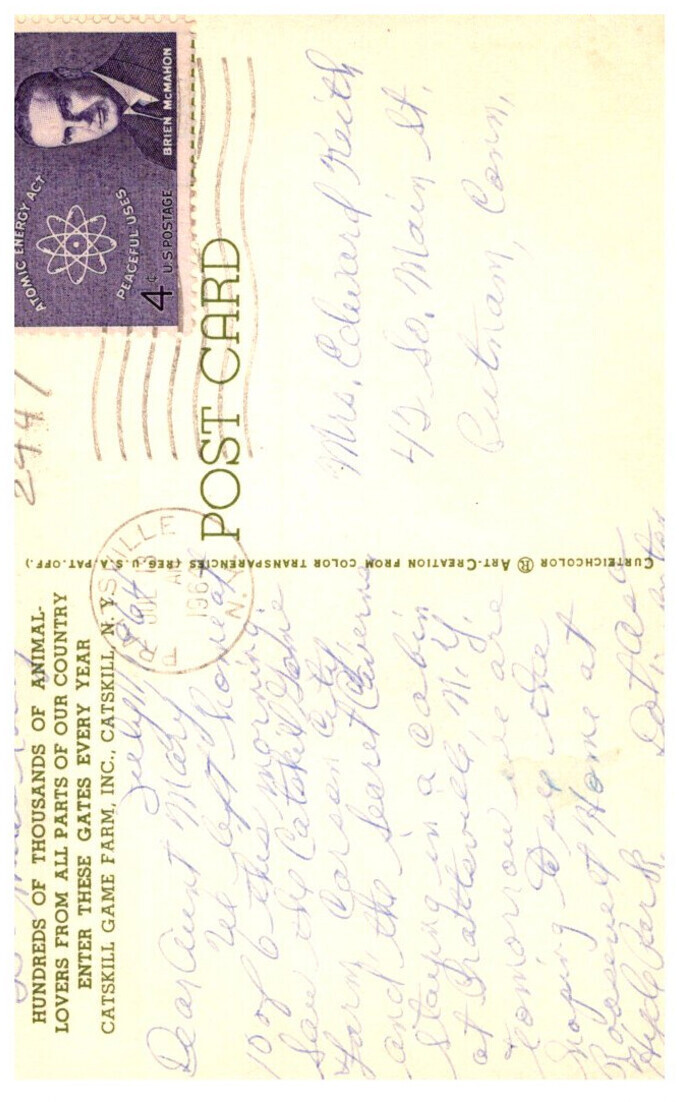 HUNDREDS OF THOUSANDS OF ANIMAL-
LOVERS FROM ALL PARTS OF OUR COUNTRY
ENTER THESE GATES EVERY YEAR
CATSKILL GAME FARM, INC., CATSKILL, N. Y.
July
Dear Aunt Mary
We left home at
10 of 6 this morning
Saw the Catskill Game
Farm, Carson City
and the Secret Caverns
staying in a cabin
at Prattsville, N.Y.
tomorrow we are
going to see the
Roosevelt Home at
Hyde Park.
Dot, Asa
CURTEICHCOLOR ® ART-CREATION FROM COLOR TRANSPARENCIES (REG. U.S.A. PAT. OFF.)
POST CARD
PRATTSVILLE
JUL 13
AM
1964
N.Y.
2441
ATOMIC ENERGY ACT
PEACEFUL USES
BRIEN McMAHON
4¢ U.S. POSTAGE
Mrs. Edward Keith
45 So. Main St.
Putnam, Conn.